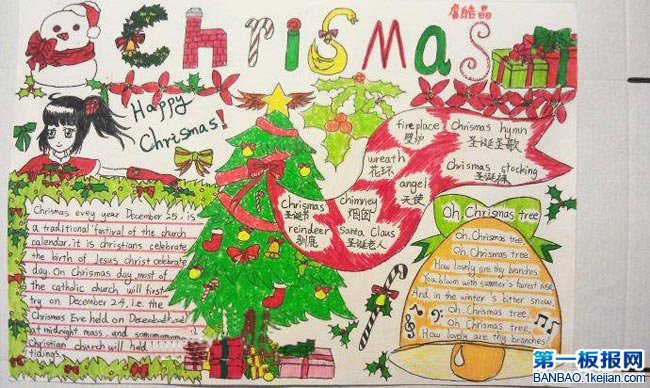 ChriSmaS
Happy
Chrismas!
fireplace
壁炉
Chrismas hymn
圣诞圣歌
wreath
花环
Chrismas stocking
圣诞袜
angel
天使
Chrismas
圣诞
chimney
烟囱
reindeer
驯鹿
Santa Claus
圣诞老人
Chrismas evey year December 25, is
a traditional festival of the church
calendar, it is christians celebrate
the birth of Jesus christ celebrate
day. On Chrismas day, most of
the catholic church will first
try on December 24, i.e. the
Chrismas Eve held on
at midnight mass, and
Christian church will held
tidings.
Oh, Chrismas tree
Oh, Chrismas tree,
Oh, Chrismas tree,
How lovely are thy branches.
You bloom with summer's fairest rose
And in the winter's bitter snow.
Oh, Chrismas tree,
Oh, Chrismas tree,
How lovely are thy branches!
第一板报网
BANBAO.1kejian.com